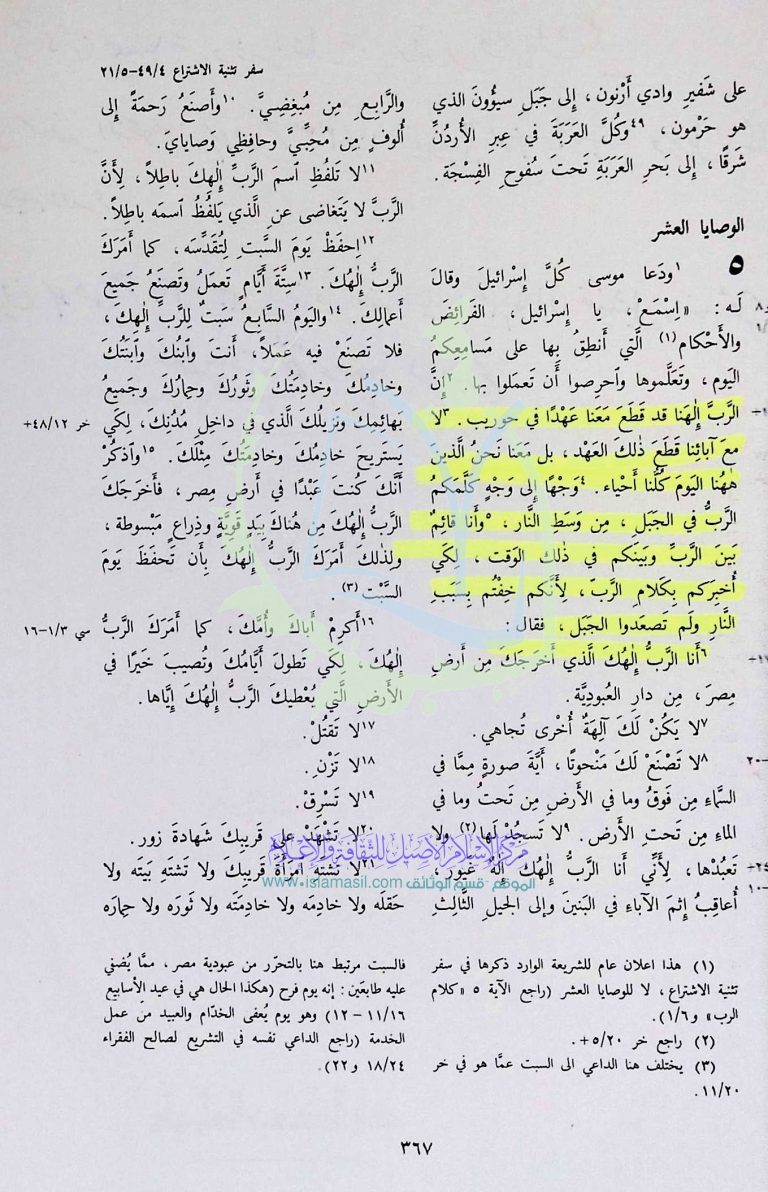 سفر تثنية الاشتراع ٤٩/٤–٢١/٥
على شَفيرِ وادي أَرْنون، إِلى جَبَلِ سيؤُونَ الذي
هو حَرْمون، ٤٩وكُلَّ العَرَبَةَ في عِبرِ الأُردُنِّ
شَرقًا، إِلى بَحرِ العَرَبَةِ تَحتَ سُفوحِ الفِسْجَة.
الوصايا العشر
٥ ١ودَعا موسى كُلَّ إِسْرائيلَ وقالَ
لَـه: «اِسْمَـعْ، يا إِسْرائيل، الفَرائِضَ
والأَحْكام(١) الَّتي أَنطِقُ بِها على مَسامِعِكمُ
اليَوم، وتَعَلَّموها وٱحرِصوا أَن تَعمَلوا بها. ٢إِنَّ
الرَّبَّ إِلٰهَنا قد قَطَعَ مَعَنا عَهْدًا في حوريب. ٣لا
معَ آبائِنا قَطَعَ ذٰلِكَ العَهْد، بل مَعَنا نَحنُ الَّذينَ
هٰهُنا اليَومَ كُلُّنا أَحْياء. ٤وَجْهًا إِلى وَجْهٍ كَلَّمَكمُ
الرَّبُّ في الجَبَل، مِن وَسَطِ النَّار، ٥وأَنا قائِمٌ
بَينَ الرَّبِّ وبَينَكم في ذٰلك الوَقت، لِكَي
أُخبِرَكم بِكَلامِ الرَّبّ، لِأَنَّكم خِفْتُم بِسَبَبِ
النَّارِ ولَم تَصعَدوا الجَبَل، فقال:
٦أَنا الرَّبُّ إِلٰهُكَ الَّذي أَخرَجَكَ مِن أَرضِ
مِصرَ، مِن دارِ العُبودِيَّة.
٧لا يَكُنْ لَكَ آلِهَةٌ أُخْرى تُجاهي.
٨لا تَصْنَعْ لَكَ مَنْحوتًا، أَيَّةَ صورةٍ مِمَّا في
السَّماءِ مِن فَوقُ وما في الأَرضِ مِن تَحتُ وما في
الماءِ مِن تَحتِ الأَرض. ٩لا تَسجُدْ لَها(٢) ولا
تَعبُدْها، لِأَنِّي أَنا الرَّبُّ إِلٰهُكَ إِلٰهٌ غَيور،
أُعاقِبُ إِثمَ الآباءِ في البَنينَ وإِلى الجيلِ الثَّالِثِ
والرَّابِعِ مِن مُبغِضِيَّ. ١٠وأَصنَعُ رَحمَةً إِلى
أُلوفٍ مِن مُحِبِّيَّ وحافِظي وَصايايَ.
١١لا تَلفُظِ ٱسمَ الرَّبِّ إِلٰهِكَ باطِلاً، لِأَنَّ
الرَّبَّ لا يَتَغاضى عنِ الَّذي يَلفُظُ ٱسمَه باطِلاً.
١٢اِحفَظْ يَومَ السَّبتِ لِتُقَدِّسَه، كما أَمَرَكَ
الرَّبُّ إِلٰهُكَ. ١٣سِتَّةَ أَيَّامٍ تَعمَلُ وتَصنَعُ جَميعَ
أَعمالِكَ. ١٤واليَومُ السَّابِعُ سَبتٌ لِلرَّبِّ إِلٰهِكَ،
فلا تَصنَعْ فيه عَمَلاً، أَنتَ وٱبنُكَ وٱبنَتُكَ
وخادِمُكَ وخادِمَتُكَ وثَورُكَ وحِمارُكَ وجَميعُ
بَهائِمِكَ ونَزيلُكَ الَّذي في داخِلِ مُدُنِكَ، لِكَي خر ٤٨/١٢+
يَستَريحَ خادِمُكَ وخادِمَتُكَ مِثْلَكَ. ١٥وٱذكُرْ
أَنَّكَ كُنتَ عَبْدًا في أَرضِ مِصر، فأَخرَجَكَ
الرَّبُّ إِلٰهُكَ مِن هُناكَ بِيَدٍ قَوِيَّةٍ وذِراعٍ مَبْسوطة،
ولِذٰلكَ أَمَرَكَ الرَّبُّ إِلٰهُكَ بِأَن تَحفَظَ يَومَ
السَّبْت(٣).
١٦أَكرِمْ أَباكَ وأُمَّكَ، كما أَمَرَكَ الرَّبُّ سي ١/٣–١٦
إِلٰهُكَ، لِكَي تَطولَ أَيَّامُكَ وتُصيبَ خَيرًا في
الأَرضِ الَّتي يُعْطيكَ الرَّبُّ إِلٰهُكَ إِيَّاها.
١٧لا تَقتُلْ.
١٨لا تَزْنِ.
١٩لا تَسْرِقْ.
٢٠لا تَشْهَدْ على قَريبِكَ شَهادةَ زور.
٢١لا تَشتَهِ ٱمرَأَةَ قَريبِكَ ولا تَشتَهِ بَيتَه ولا
حَقلَه ولا خادِمَه ولا خادِمَتَه ولا ثَورَه ولا حِمارَه
مركز الإسلام الأصيل للثقافة والإعلام
الموقع - قسم الوثائق www.islamasil.com
(١) هذا اعلان عام للشريعة الوارد ذكرها في سفر
تثنية الاشتراع، لا للوصايا العشر (راجع الآية ٥ «كلام
الرب» و١/٦).
(٢) راجع خر ٥/٢٠+.
(٣) يختلف هنا الداعي الى السبت عمّا هو في خر
١١/٢٠.
فالسبت مرتبط هنا بالتحرّر من عبودية مصر، ممّا يُضفي
عليه طابعَين: إنه يوم فرح (هكذا الحال هي في عيد الأسابيع
١١/١٦ – ١٢) وهو يوم يُعفى الخدّام والعبيد من عمل
الخدمة (راجع الداعي نفسه في التشريع لصالح الفقراء
١٨/٢٤ و٢٢).
٣٦٧